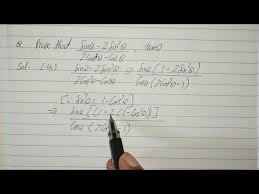 Q Prove that sinθ - 2sin³θ / 2cos³θ - cosθ = tanθ
Sol. L.H.S sinθ - 2sin³θ / 2cos³θ - cosθ ⇒ sinθ (1 - 2sin²θ) / cosθ (2cos²θ - 1)
∵ sin²θ = 1 - cos²θ
⇒ sinθ [(1 - 2(1 - cos²θ))] / cosθ (2cos²θ - 1)